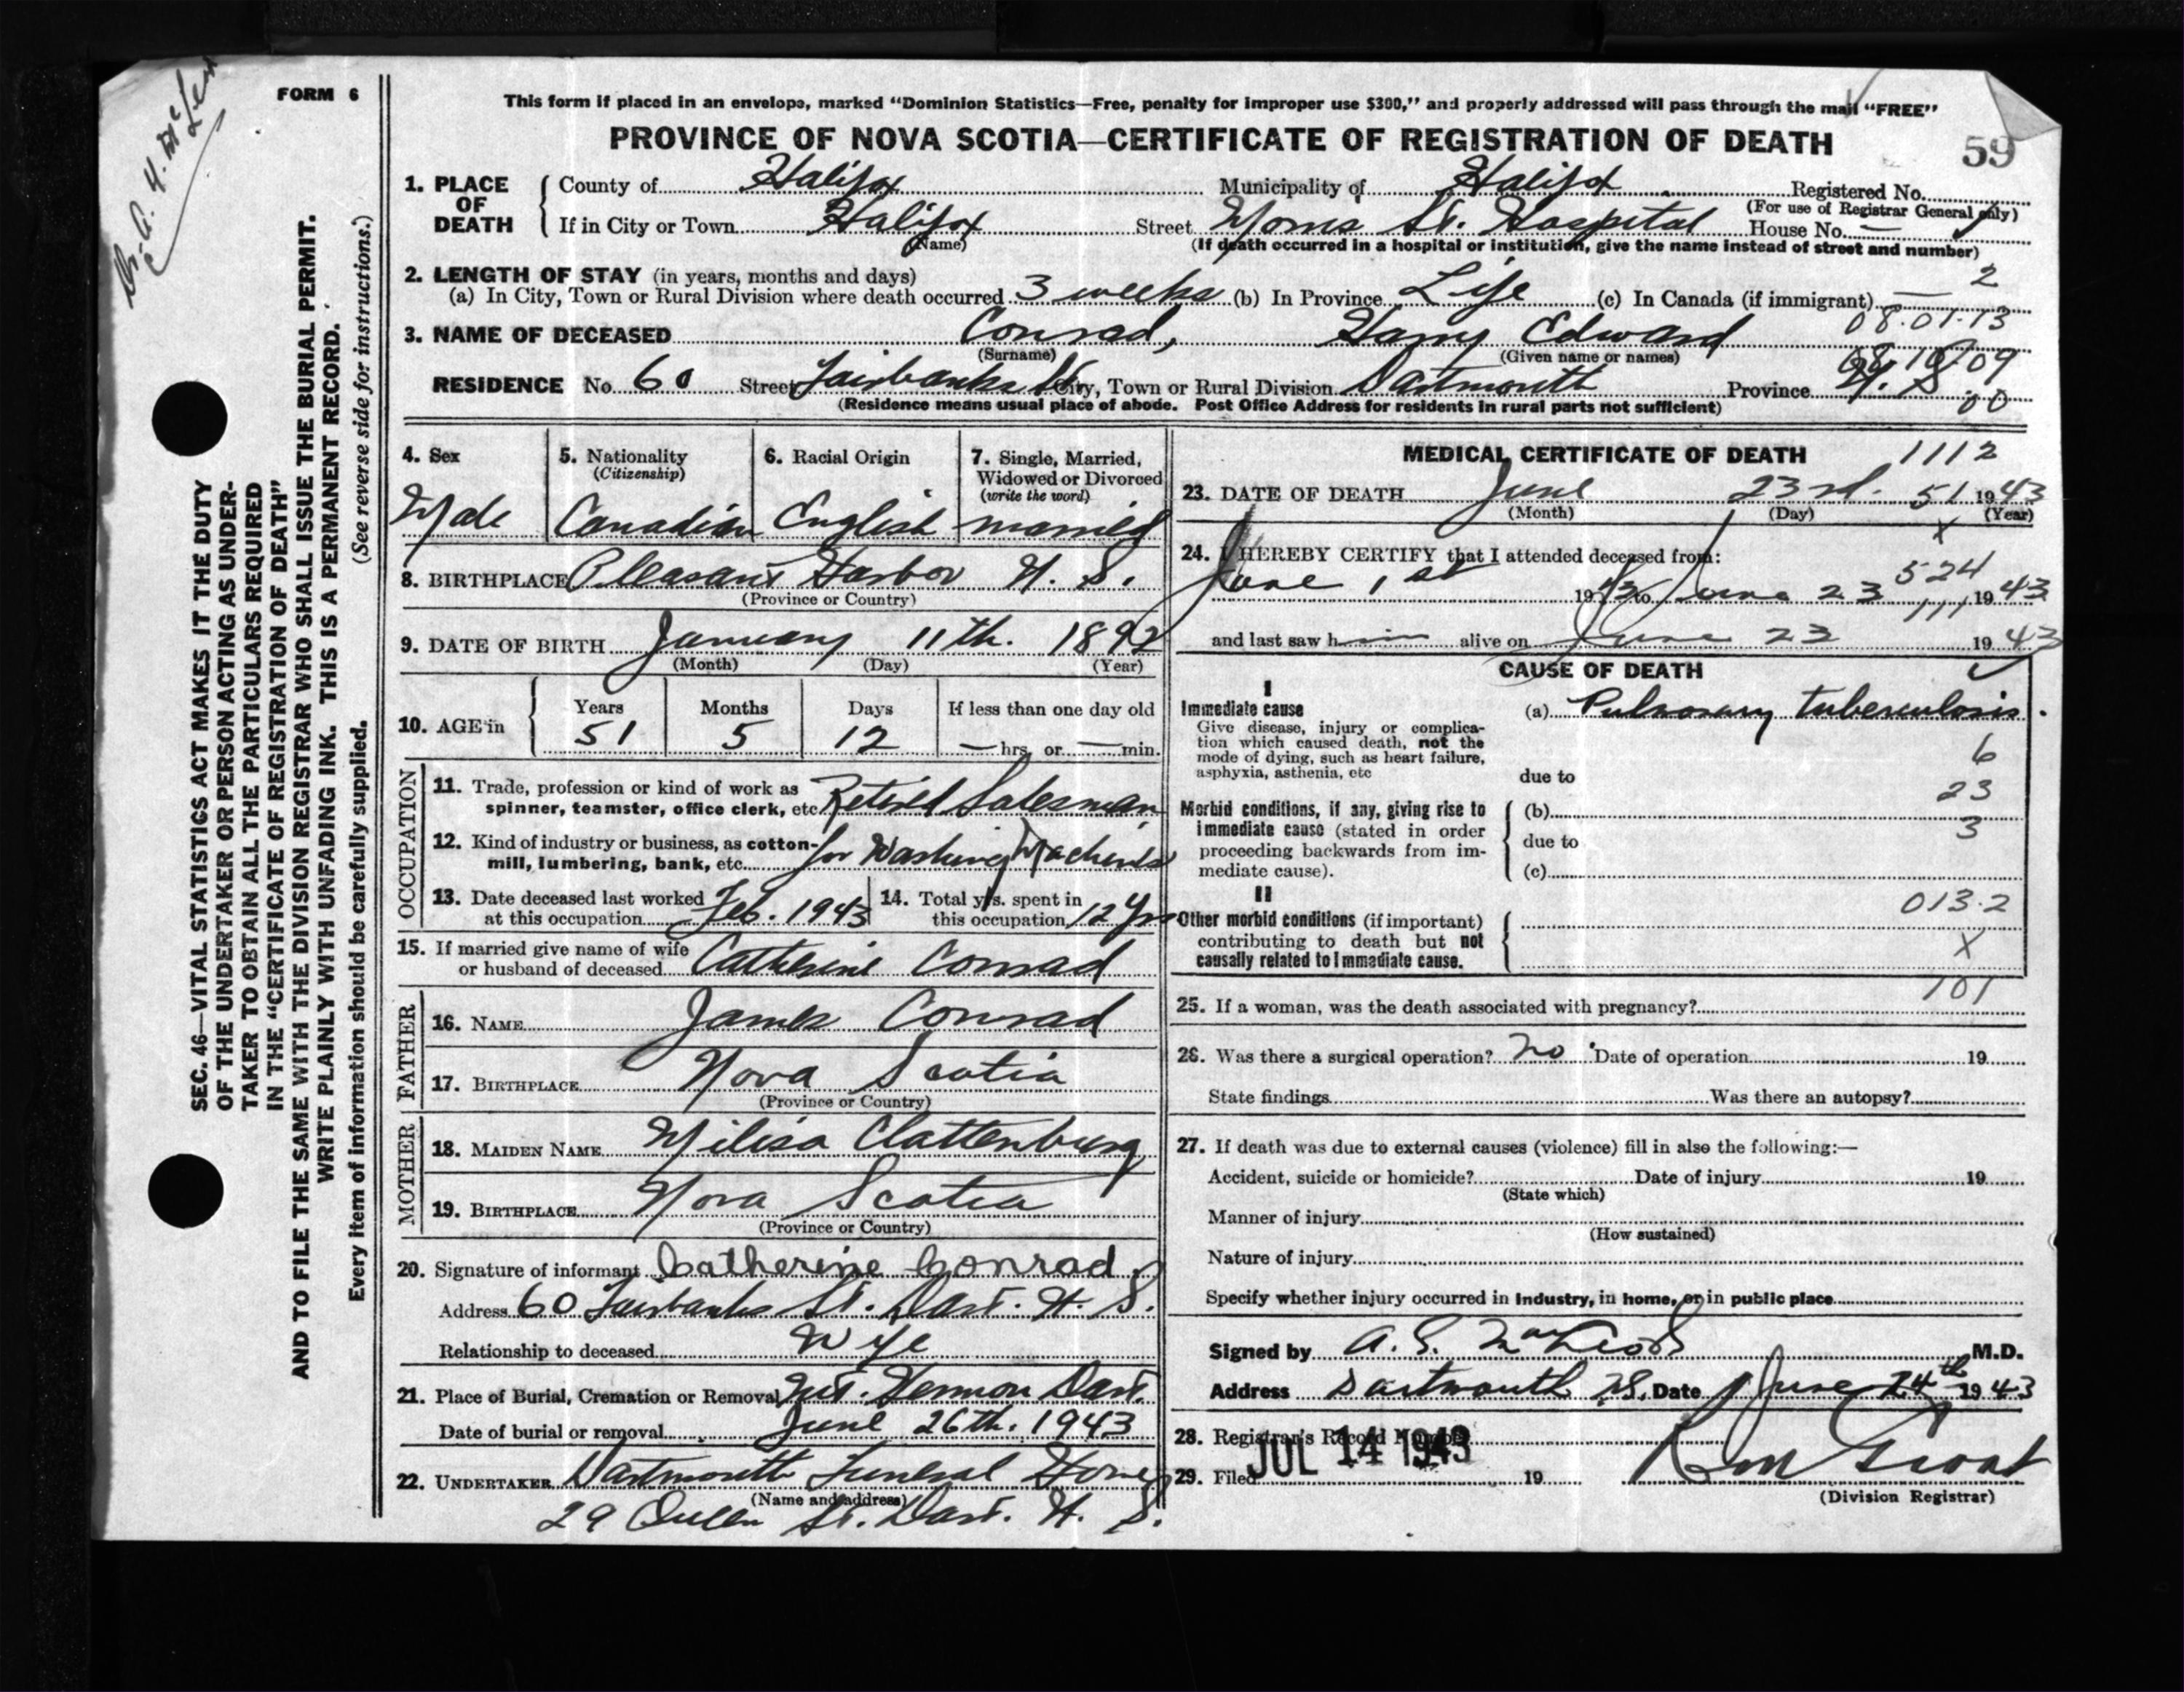 FORM 6
This form if placed in an envelope, marked "Dominion Statistics—Free, penalty for improper use $300," and properly addressed will pass through the mail "FREE"
PROVINCE OF NOVA SCOTIA—CERTIFICATE OF REGISTRATION OF DEATH
59
1. PLACE OF DEATH County of Halifax Municipality of Halifax Registered No.
(For use of Registrar General only)
If in City or Town Halifax Street Morris St. Hospital House No. —
(Name) (If death occurred in a hospital or institution, give the name instead of street and number)
2. LENGTH OF STAY (in years, months and days) 2
(a) In City, Town or Rural Division where death occurred 3 weeks (b) In Province Life (c) In Canada (if immigrant) —
08.01.13
3. NAME OF DECEASED Conrad, Harry Edward
(Surname) (Given name or names)
RESIDENCE No. 60 Street Fairbanks St. City, Town or Rural Division Dartmouth Province N. S.
00
(Residence means usual place of abode. Post Office Address for residents in rural parts not sufficient)
4. Sex Male
5. Nationality (Citizenship) Canadian
6. Racial Origin English
7. Single, Married, Widowed or Divorced (write the word) married
8. BIRTHPLACE Pleasant Harbor N. S.
(Province or Country)
9. DATE OF BIRTH January 11th. 1892
(Month) (Day) (Year)
10. AGE in Years 51 Months 5 Days 12 If less than one day old — hrs. or — min.
OCCUPATION
11. Trade, profession or kind of work as spinner, teamster, office clerk, etc. Retired Salesman
12. Kind of industry or business, as cotton-mill, lumbering, bank, etc. for Washing Machines
13. Date deceased last worked at this occupation Feb. 1943
14. Total yrs. spent in this occupation 12 Yrs
15. If married give name of wife or husband of deceased Catherine Conrad
FATHER
16. NAME James Conrad
17. BIRTHPLACE Nova Scotia
(Province or Country)
MOTHER
18. MAIDEN NAME Milisa Clattenburg
19. BIRTHPLACE Nova Scotia
(Province or Country)
20. Signature of informant Catherine Conrad
Address 60 Fairbanks St. Dart. N. S.
Relationship to deceased Wife
21. Place of Burial, Cremation or Removal Mt. Hermon Dart.
Date of burial or removal June 26th. 1943
22. UNDERTAKER Dartmouth Funeral Home
(Name and address)
29 Queen St. Dart. N. S.
MEDICAL CERTIFICATE OF DEATH 1112
23. DATE OF DEATH June 23rd. 51 1943
(Month) (Day) (Year)
X
24. I HEREBY CERTIFY that I attended deceased from:
524
June 1st 1943 to June 23 1943
111
and last saw him alive on June 23 1943
CAUSE OF DEATH
I
Immediate cause
Give disease, injury or complication which caused death, not the mode of dying, such as heart failure, asphyxia, asthenia, etc
(a) Pulmonary tuberculosis.
6
due to
23
Morbid conditions, if any, giving rise to immediate cause (stated in order proceeding backwards from immediate cause).
(b)
3
due to
(c)
II
013.2
Other morbid conditions (if important) contributing to death but not causally related to immediate cause.
X
101
25. If a woman, was the death associated with pregnancy?
26. Was there a surgical operation? No Date of operation 19
State findings Was there an autopsy?
27. If death was due to external causes (violence) fill in also the following:—
Accident, suicide or homicide? Date of injury 19
(State which)
Manner of injury
(How sustained)
Nature of injury
Specify whether injury occurred in industry, in home, or in public place
Signed by A. S. MacLeod M.D.
Address Dartmouth N.S. Date June 24th 1943
28. Registrar's Record Number
29. Filed JUL 14 1943 19
(Division Registrar)
SEC. 46—VITAL STATISTICS ACT MAKES IT THE DUTY
OF THE UNDERTAKER OR PERSON ACTING AS UNDER-
TAKER TO OBTAIN ALL THE PARTICULARS REQUIRED
IN THE "CERTIFICATE OF REGISTRATION OF DEATH"
AND TO FILE THE SAME WITH THE DIVISION REGISTRAR WHO SHALL ISSUE THE BURIAL PERMIT.
WRITE PLAINLY WITH UNFADING INK. THIS IS A PERMANENT RECORD.
Every item of information should be carefully supplied. (See reverse side for instructions.)